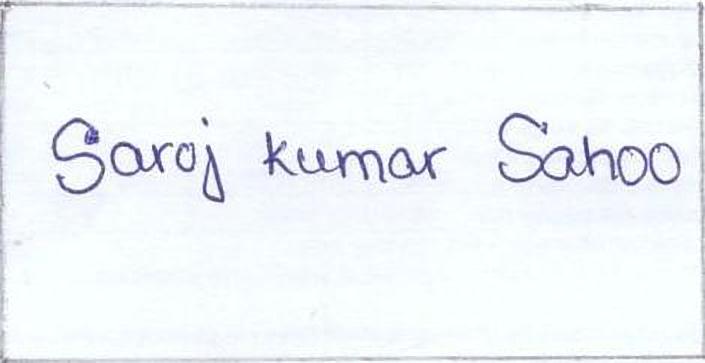 Saroj kumar Sahoo